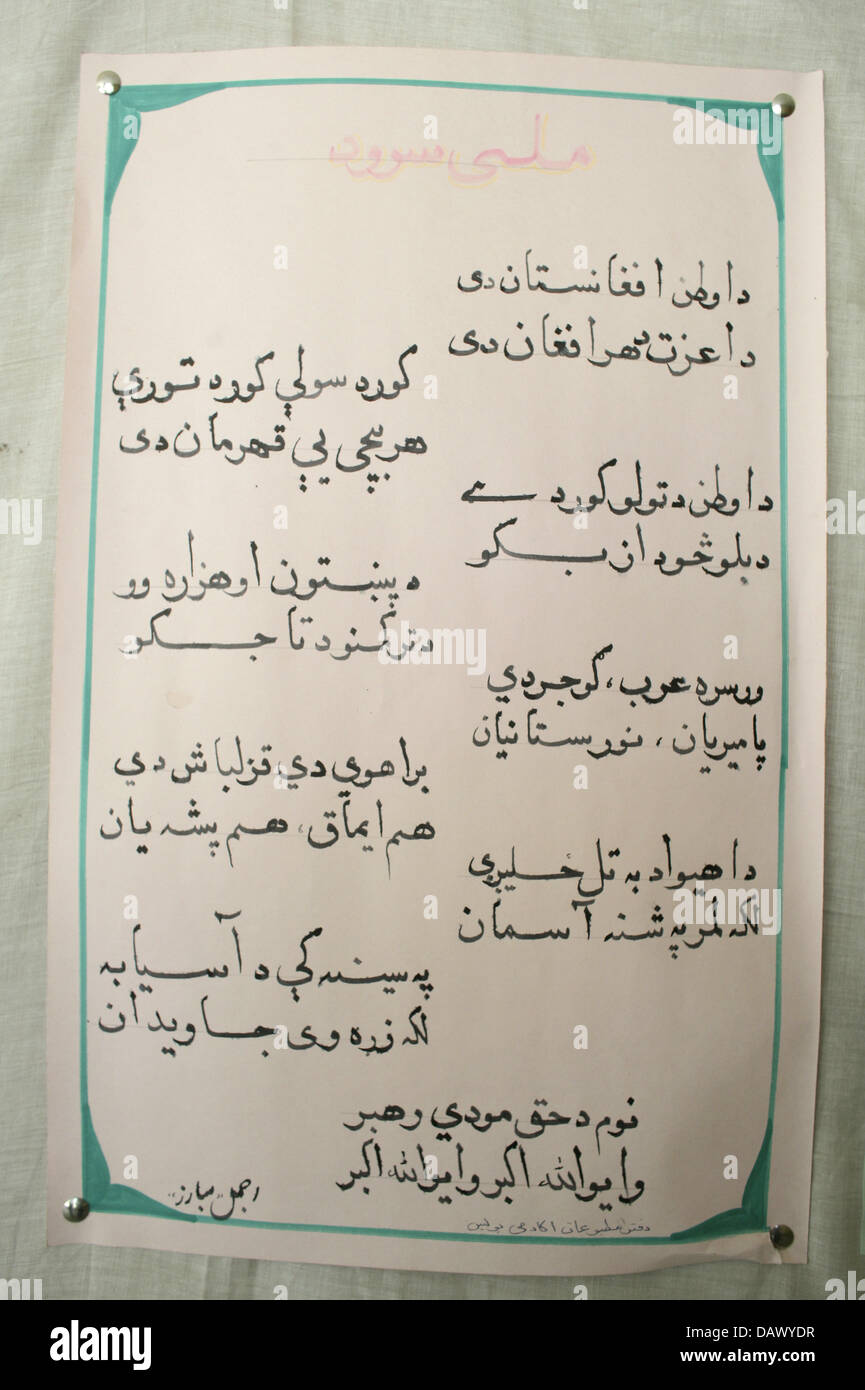 ملي سرود
دا وطن افغانستان دی
دا عزت د هر افغان دی
کور د سولې کور د تورې
هر بچی یې قهرمان دی
دا وطن د ټولو کور دے
د بلوڅو د ازبکو
د پښتون او هزاره وو
د ترکمنو د تاجکو
ورسره عرب، گوجر دي
پامیریان، نورستانیان
براهوي دي قزلباش دي
هم ایماق، هم پشه یان
دا هیواد به تل ځلیږي
لکه لمر په شنه آسمان
په سینه کې د آسیا به
لکه زړه وی جاویدان
نوم د حق مو دي رهبر
وایو الله اکبر وایو الله اکبر
اجمل "مبارز"
دفتر مطبوعات اکادمی پولیس
a
alamy
Image ID: DAWYDR
www.alamy.com